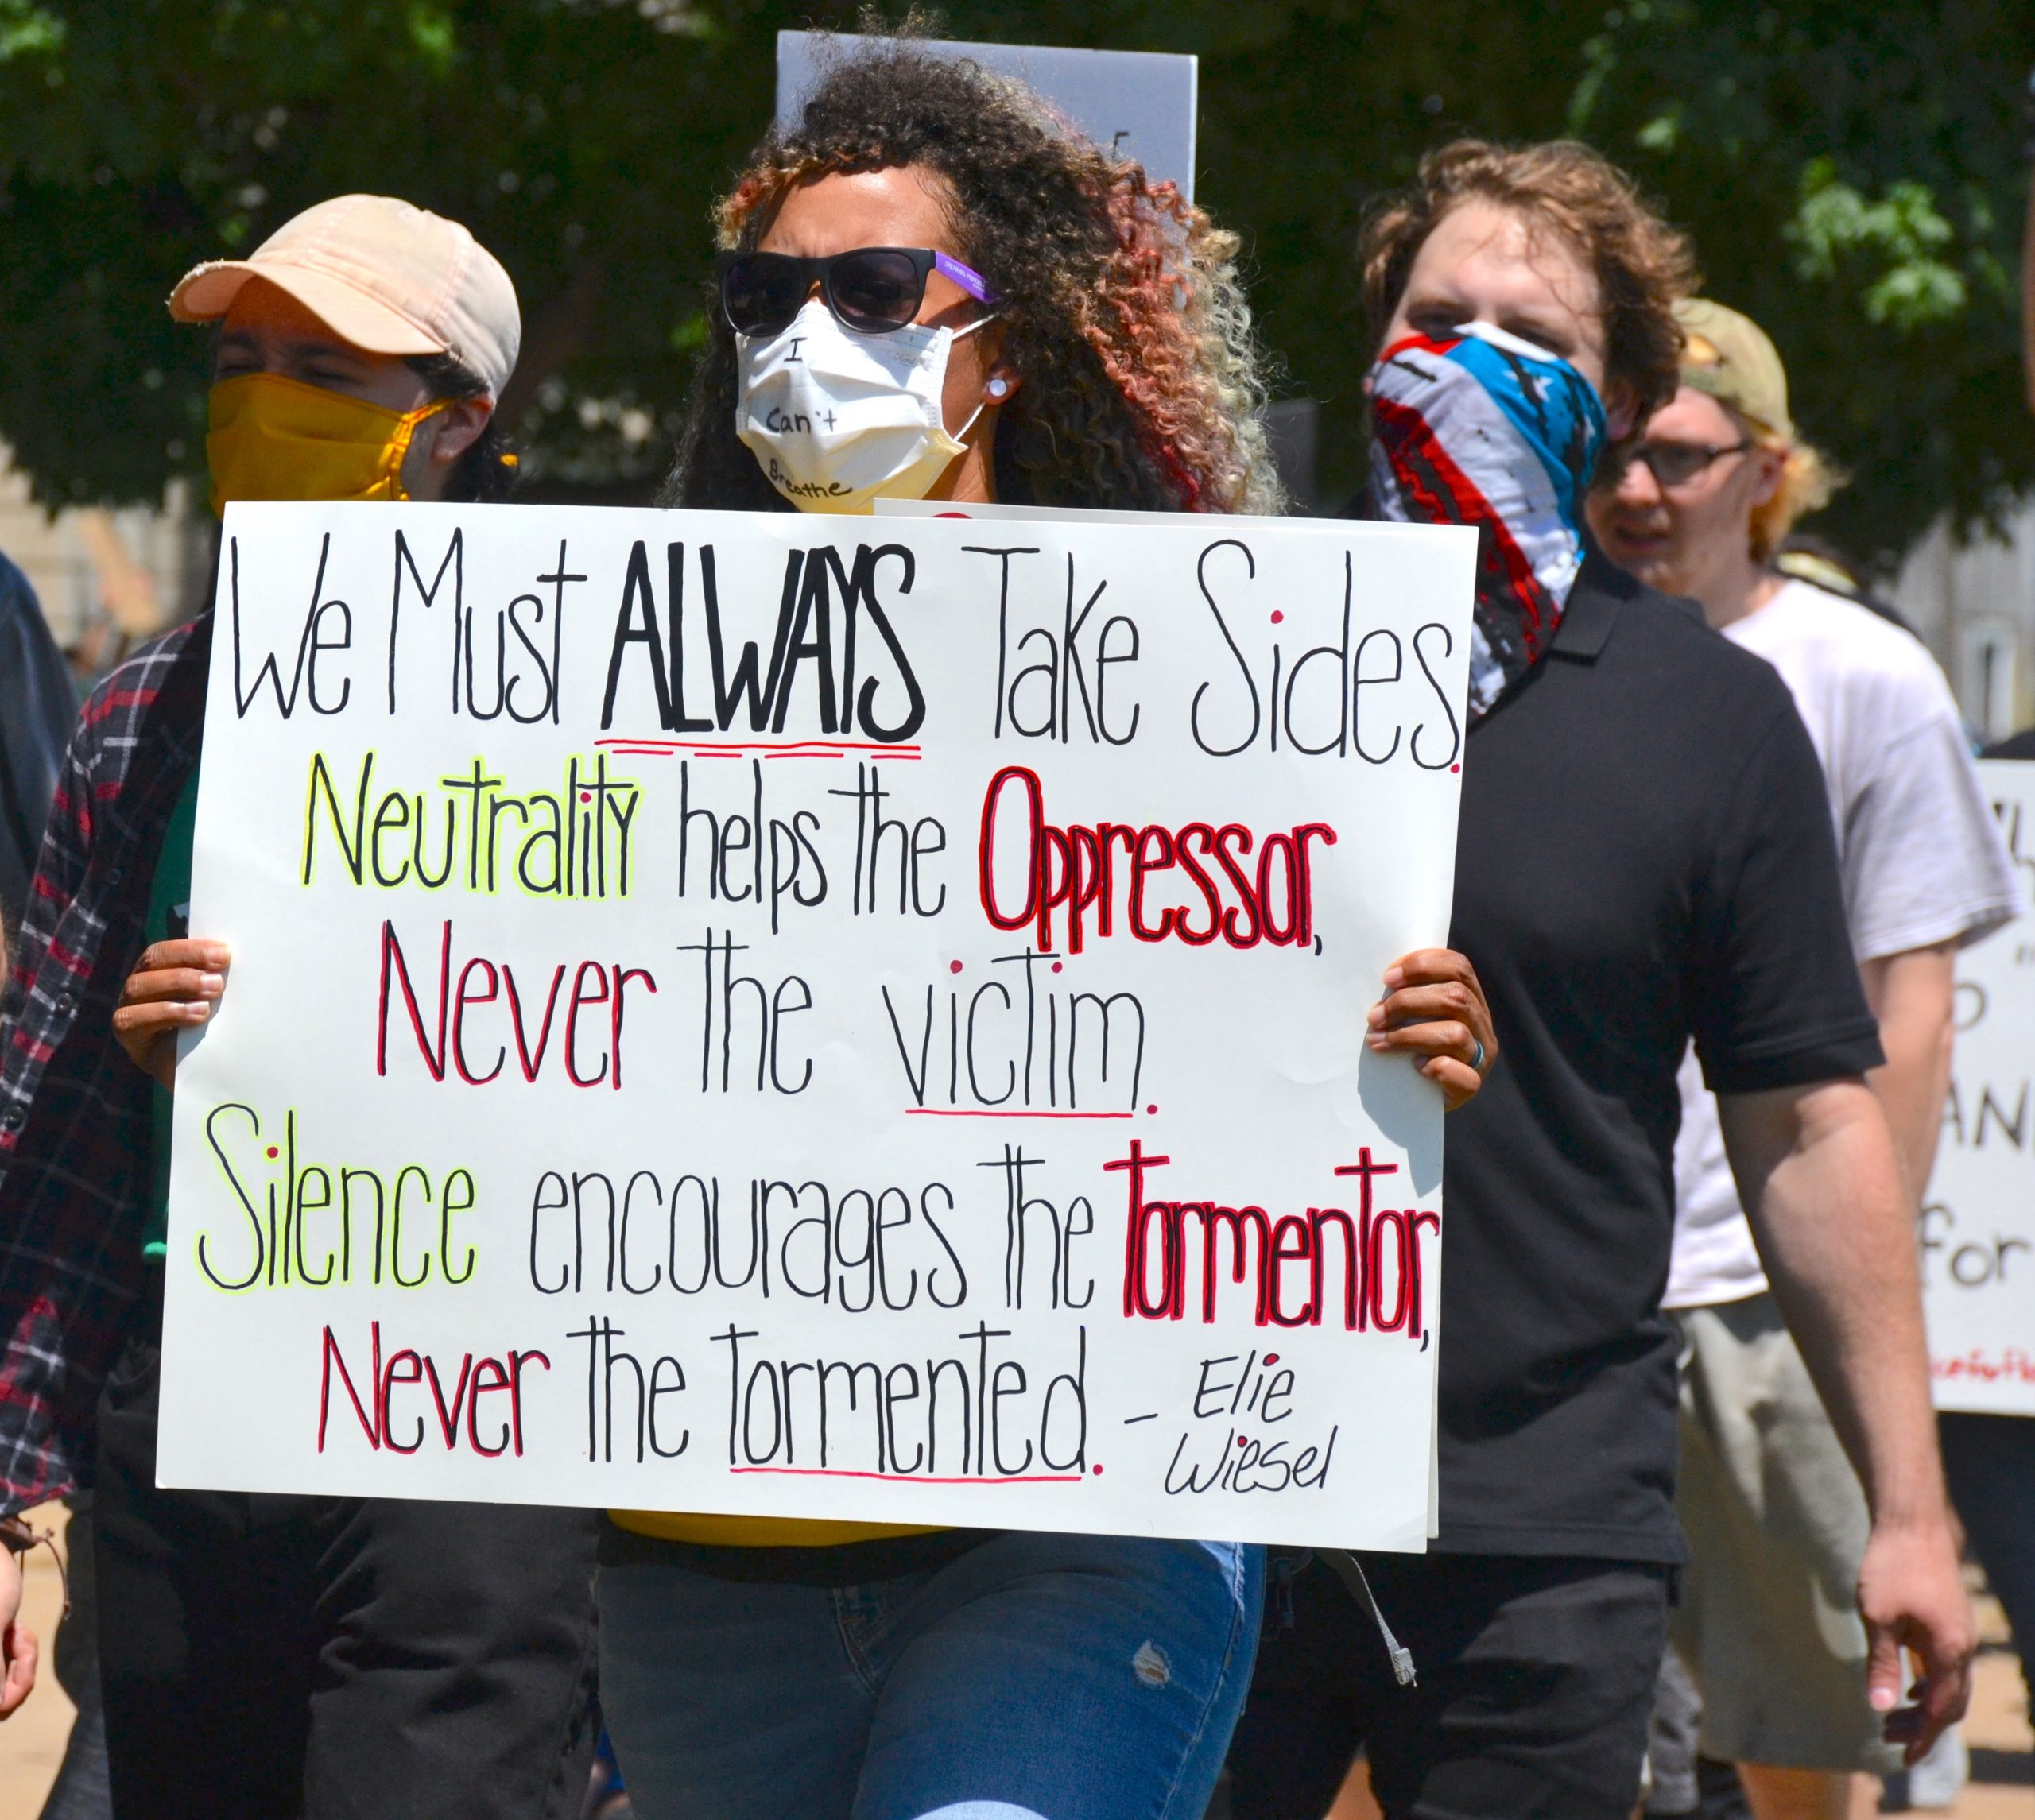 I
Can't
Breathe
We Must ALWAYS Take Sides.
Neutrality helps the Oppressor,
Never the victim.
Silence encourages the tormentor,
Never the tormented. - Elie
Wiesel
for